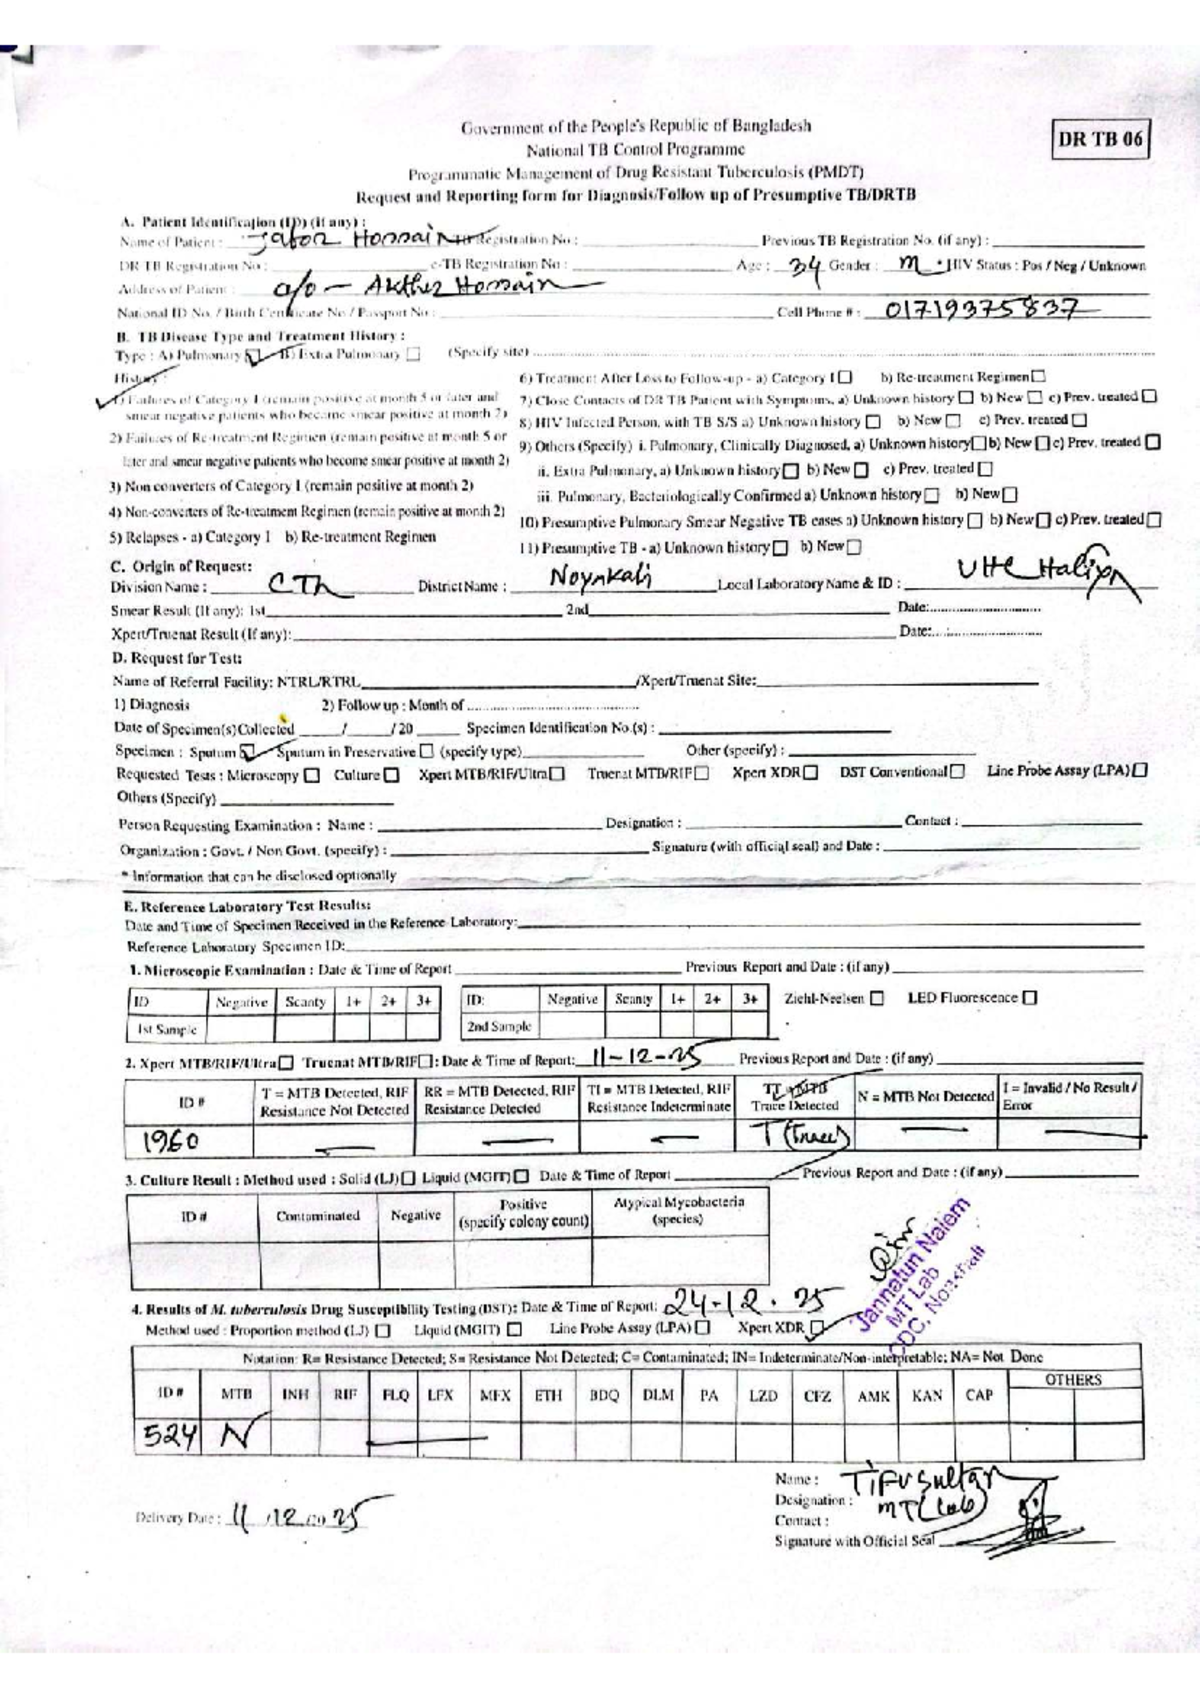 Government of the People's Republic of Bangladesh
DR TB 06
National TB Control Programme
Programmatic Management of Drug Resistant Tuberculosis (PMDT)
Request and Reporting form for Diagnosis/Follow up of Presumptive TB/DRTB
A. Patient Identification (ID) (if any) :
Name of Patient : Jafor Hossain Registration No : Previous TB Registration No. (if any) :
DR TB Registration No : e-TB Registration No : Age : 34 Gender : M *HIV Status : Pos / Neg / Unknown
Address of Patient : Akther Hossain
National ID No. / Birth Certificate No / Passport No : Cell Phone # : 01719375837
B. TB Disease Type and Treatment History :
Type : A) Pulmonary B) Extra Pulmonary (Specify site)
History :
1) Failures of Category I (remain positive at month 5 or later and
smear negative patients who become smear positive at month 2)
2) Failures of Re-treatment Regimen (remain positive at month 5 or
later and smear negative patients who become smear positive at month 2)
3) Non converters of Category I (remain positive at month 2)
4) Non-converters of Re-treatment Regimen (remain positive at month 2)
5) Relapses - a) Category I b) Re-treatment Regimen
6) Treatment After Loss to Follow-up - a) Category I b) Re-treatment Regimen
7) Close Contacts of DR TB Patient with Symptoms, a) Unknown history b) New c) Prev. treated
8) HIV Infected Person, with TB S/S a) Unknown history b) New c) Prev. treated
9) Others (Specify) i. Pulmonary, Clinically Diagnosed, a) Unknown history b) New c) Prev. treated
ii. Extra Pulmonary, a) Unknown history b) New c) Prev. treated
iii. Pulmonary, Bacteriologically Confirmed a) Unknown history b) New
10) Presumptive Pulmonary Smear Negative TB cases a) Unknown history b) New c) Prev. treated
11) Presumptive TB - a) Unknown history b) New
C. Origin of Request:
Division Name : CTh District Name : Noynkali Local Laboratory Name & ID : UHC
Smear Result (If any): 1st 2nd Date:
Xpert/Truenat Result (If any): Date:
D. Request for Test:
Name of Referral Facility: NTRL/RTRL /Xpert/Truenat Site:
1) Diagnosis 2) Follow up : Month of
Date of Specimen(s) Collected / / 20 Specimen Identification No.(s) :
Specimen : Sputum Sputum in Preservative (specify type) Other (specify) :
Requested Tests : Microscopy Culture Xpert MTB/RIF/Ultra Truenat MTB/RIF Xpert XDR DST Conventional Line Probe Assay (LPA)
Others (Specify)
Person Requesting Examination : Name : Designation : Contact :
Organization : Govt. / Non Govt. (specify) : Signature (with official seal) and Date :
* Information that can be disclosed optionally
E. Reference Laboratory Test Results:
Date and Time of Specimen Received in the Reference Laboratory:
Reference Laboratory Specimen ID:
1. Microscopic Examination : Date & Time of Report Previous Report and Date : (if any)
ID Negative Scanty 1+ 2+ 3+ ID: Negative Scanty 1+ 2+ 3+ Ziehl-Neelsen LED Fluorescence
1st Sample 2nd Sample
2. Xpert MTB/RIF/Ultra Truenat MTB/RIF : Date & Time of Report: 11-12-25 Previous Report and Date : (if any)
ID # T = MTB Detected, RIF Resistance Not Detected RR = MTB Detected, RIF Resistance Detected TI = MTB Detected, RIF Resistance Indeterminate TT = MTB Trace Detected N = MTB Not Detected I = Invalid / No Result / Error
1960 — — — T (Trace) — —
3. Culture Result : Method used : Solid (LJ) Liquid (MGIT) Date & Time of Report Previous Report and Date : (if any)
ID # Contaminated Negative Positive (specify colony count) Atypical Mycobacteria (species)
Jannatun Naiem
MT Lab
CDC, Noakhali
4. Results of M. tuberculosis Drug Susceptibility Testing (DST): Date & Time of Report: 24-12-25
Method used : Proportion method (LJ) Liquid (MGIT) Line Probe Assay (LPA) Xpert XDR
Notation: R= Resistance Detected; S= Resistance Not Detected; C= Contaminated; IN= Indeterminate/Non-interpretable; NA= Not Done
ID # MTB INH RIF FLQ LFX MFX ETH BDQ DLM PA LZD CFZ AMK KAN CAP OTHERS
524 N
Name : Tifu Sultan
Designation : MT (Lab)
Contact :
Delivery Date : 11/12/2025
Signature with Official Seal